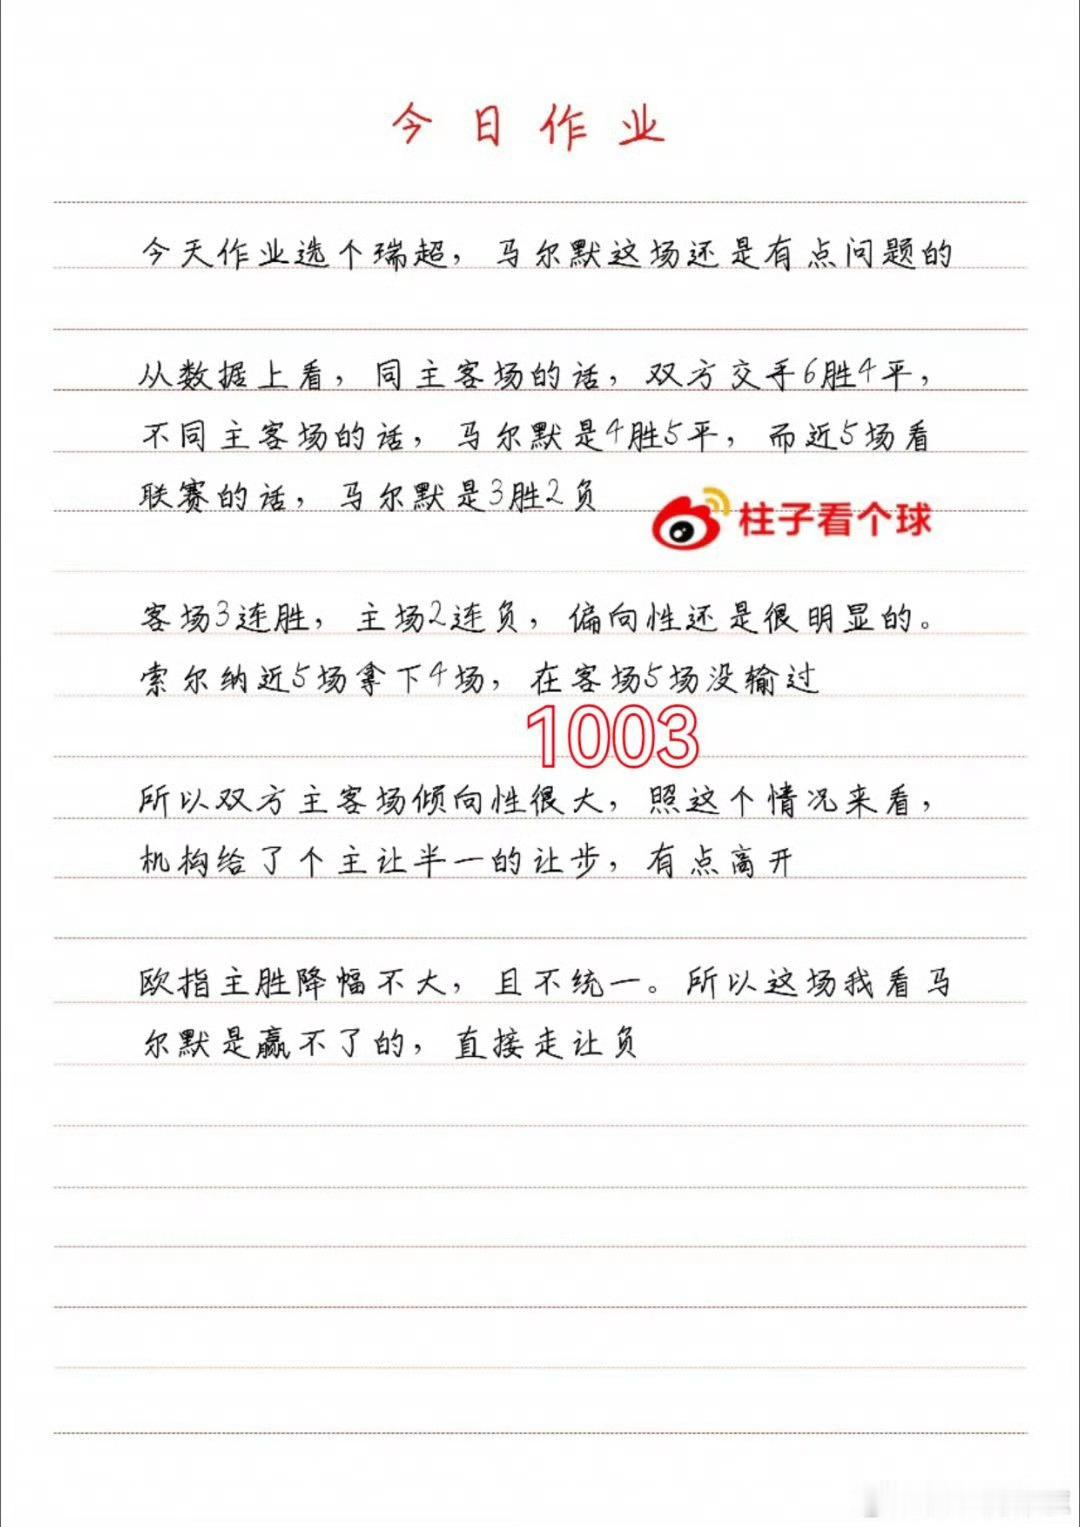 今日作业
今天作业选个瑞超，马尔默这场还是有点问题的
从数据上看，同主客场的话，双方交手6胜4平，
不同主客场的话，马尔默是4胜5平，而近5场看
联赛的话，马尔默是3胜2负
柱子看个球
客场3连胜，主场2连负，偏向性还是很明显的。
索尔纳近5场拿下4场，在客场5场没输过
1003
所以双方主客场倾向性很大，照这个情况来看，
机构给了个主让半一的让步，有点离开
欧指主胜降幅不大，且不统一。所以这场我看马
尔默是赢不了的，直接走让负